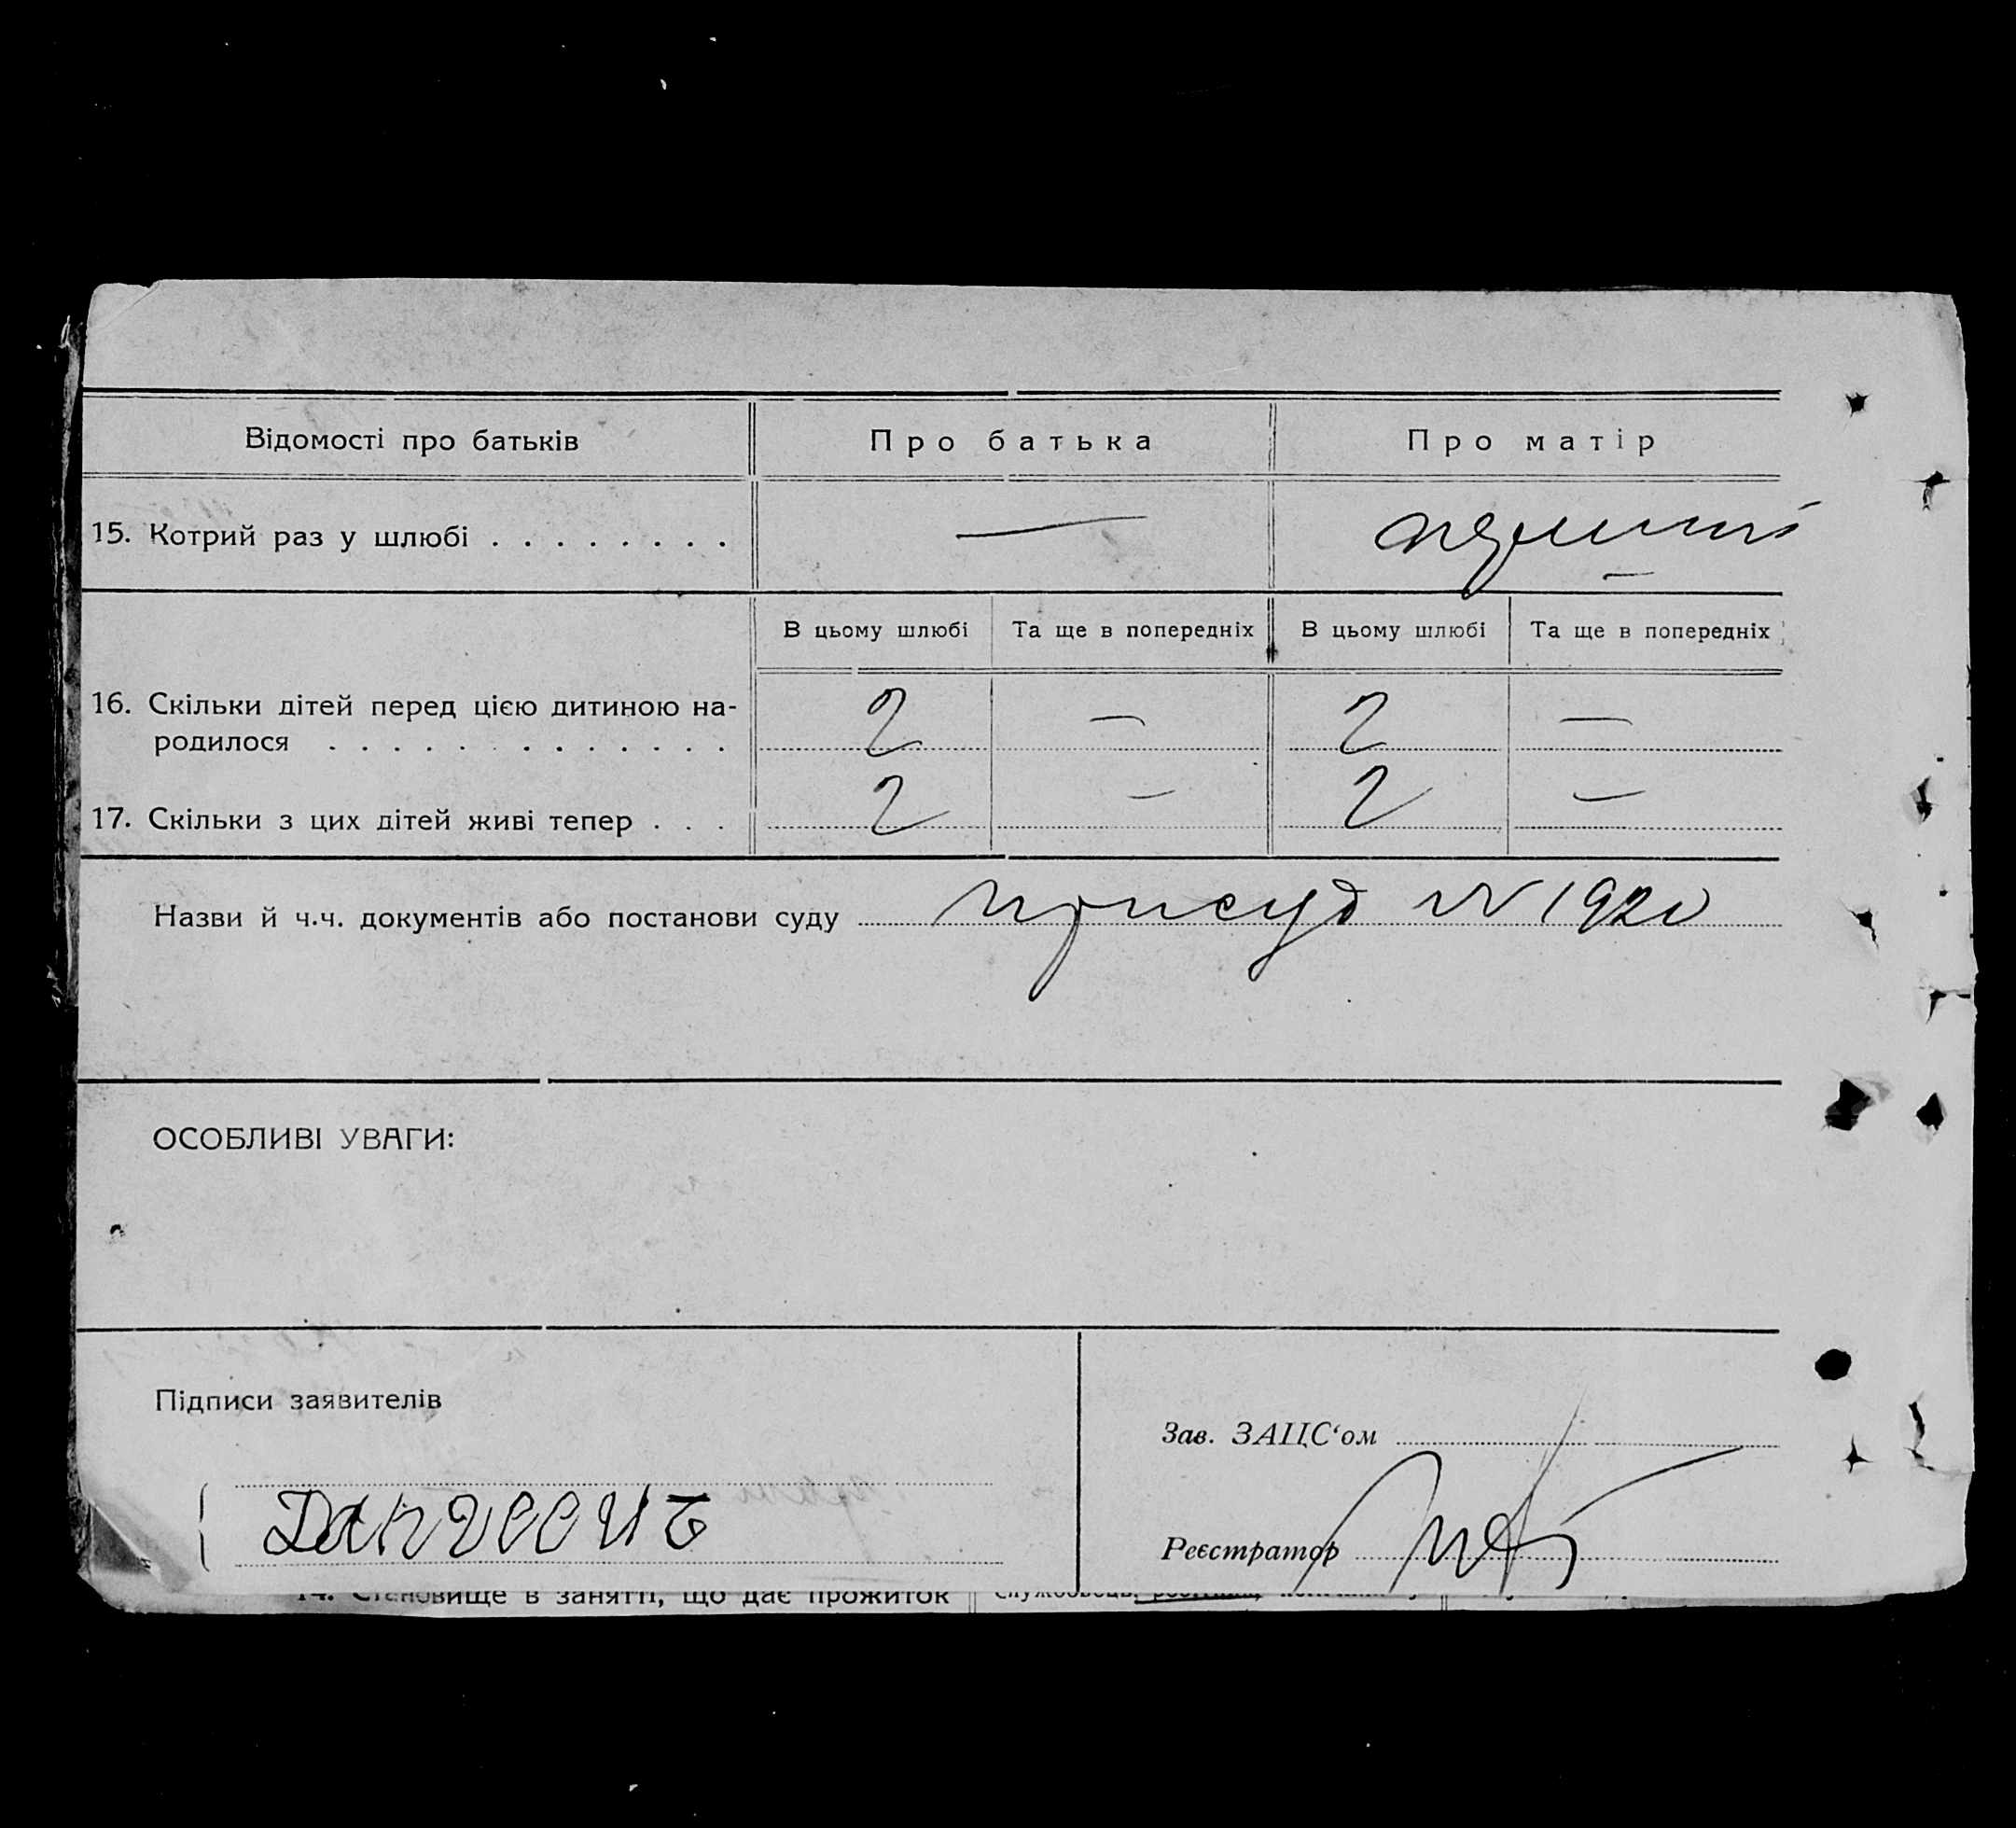 Відомості про батьків Про батька Про матір
15. Котрий раз у шлюбі . . . . . . . . —
В цьому шлюбі Та ще в попередніх В цьому шлюбі Та ще в попередніх
16. Скільки дітей перед цією дитиною на-
родилося . . . . . . . . . . . . . 2 — 2 —
17. Скільки з цих дітей живі тепер . . . 2 — 2 —
Назви й ч.ч. документів або постанови суду присуд N 1920
ОСОБЛИВІ УВАГИ:
Підписи заявителів
Зав. ЗАЦС‘ом
Реєстратор
14. Становище в занятті, що дає прожиток